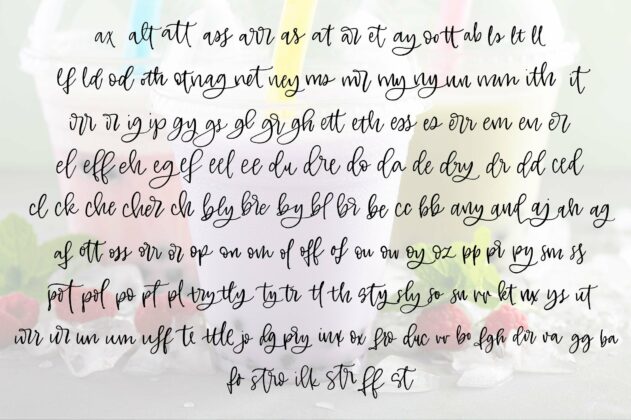 ax alt att ass arr as at ar et ay oo tt ab ls lt ll
lf ld od oth ot nag net ney ms mr my ny nn mm ith it
rr ir ig ip gy gs gl gr gh ett eth ess es err em en er
el eff eh eg ef eel ee du dre do da de dry dr dd ced
cl ck che cher ch bly bre by bf br be cc bb any and aj ah ag
af ott oss orr or op on om of off of ou ow oy oz pp pr py sm ss
pot pol po pt pl try tly ty tr tl th sty sly so sn vv kt nx ys ut
urr ur un um uff te ttle jo dg pry inx ox fro duc vv bo fgh dir va gg ba
fo stro ilk str ff st